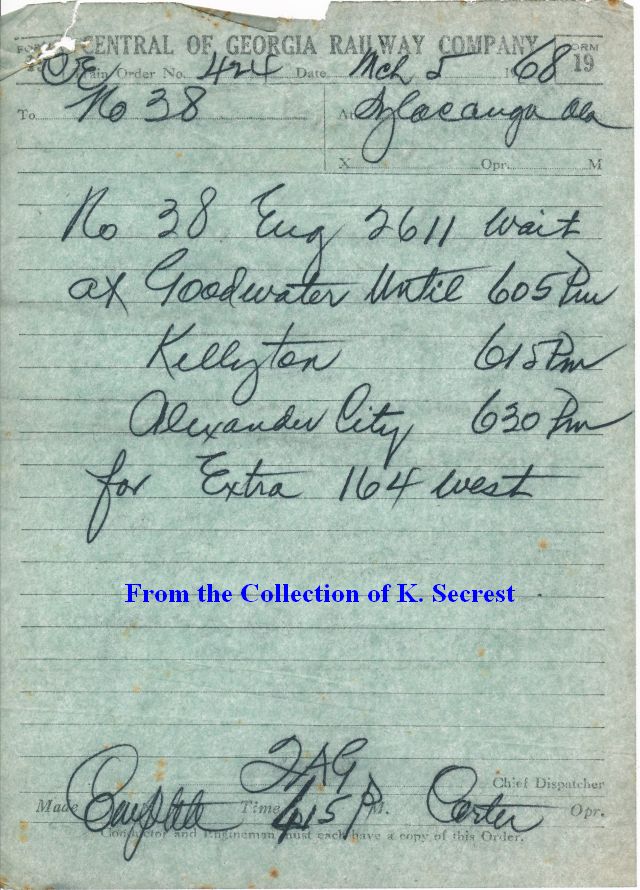 CENTRAL OF GEORGIA RAILWAY COMPANY
FORM 19
Train Order No. 424 Date Mch 5 1968
To No 38 At Sylacauga Ala
X Opr. M
No 38 Eng 2611 wait
at Goodwater Until 605 Pm
Kellyton 615 Pm
Alexander City 630 Pm
for Extra 164 west
From the Collection of K. Secrest
Chief Dispatcher
Made Complete Time 415 P M. Carter Opr.
Conductor and Engineman must each have a copy of this Order.